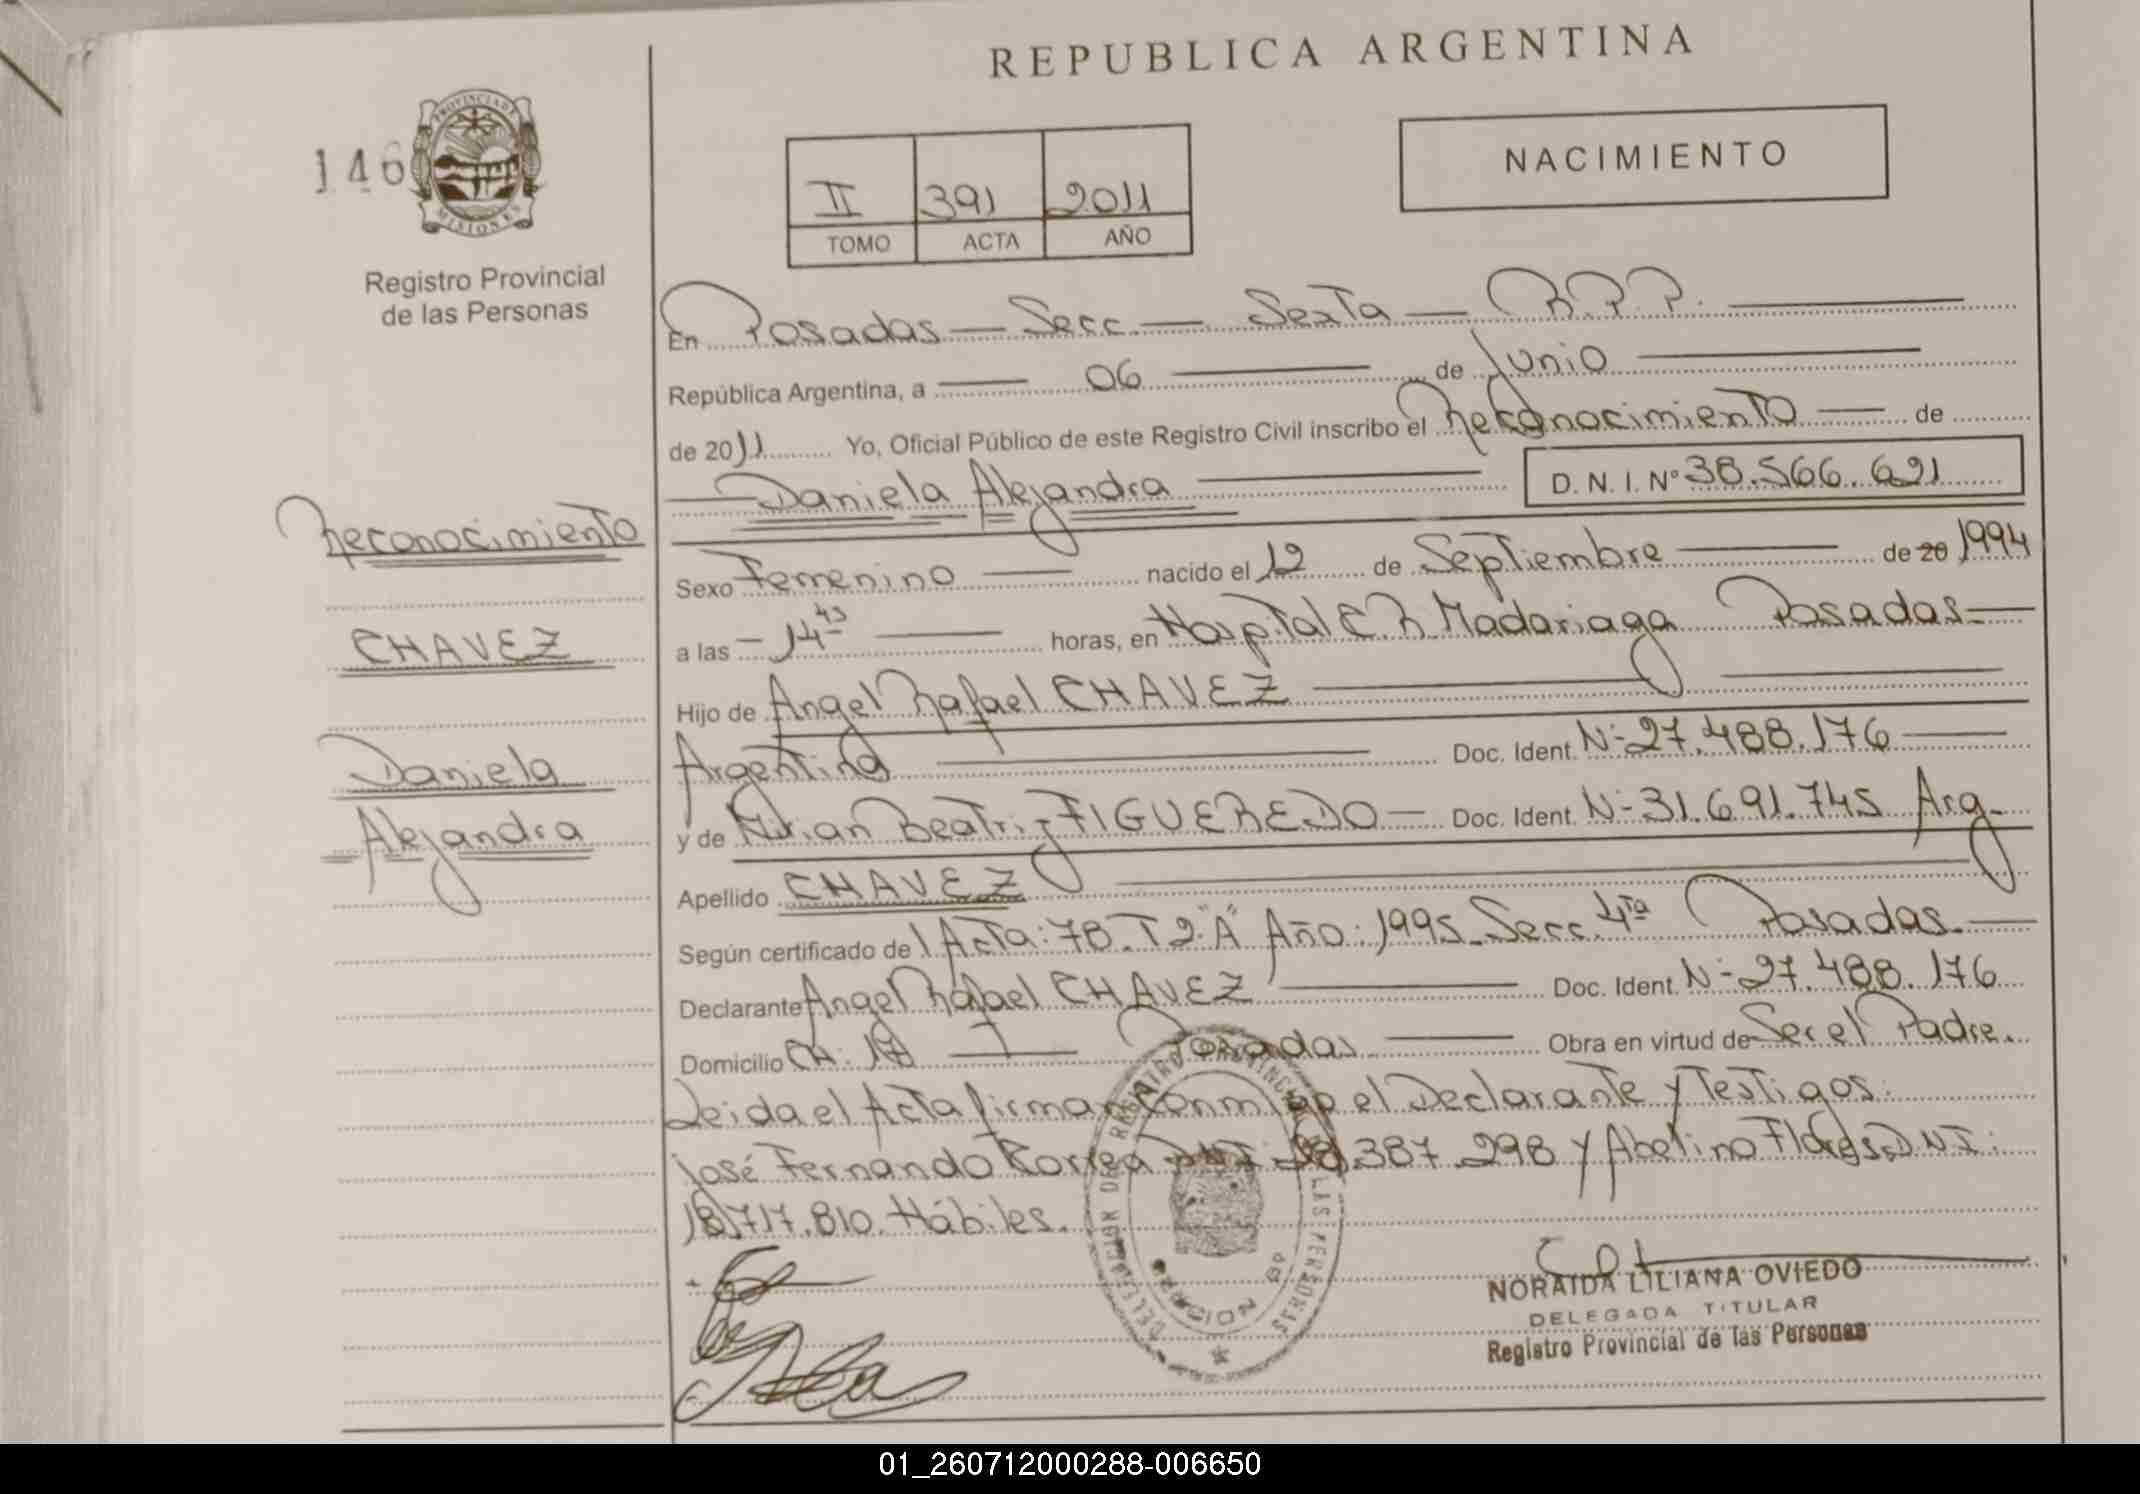 REPUBLICA ARGENTINA
146
PROVINCIA DE
MISIONES
Registro Provincial
de las Personas
II 391 2011
TOMO ACTA AÑO
NACIMIENTO
En Posadas — Secc — Sexta — R.P.P.
República Argentina, a 06 de Junio
de 2011 Yo, Oficial Público de este Registro Civil inscribo el Reconocimiento de
Daniela Alejandra D. N. I. Nº 38.566.621
Reconocimiento
CHAVEZ
Daniela
Alejandra
Sexo Femenino nacido el 12 de Septiembre de 20 1994
a las 14 45 horas, en Hospital R. Madariaga Posadas
Hijo de Angel Rafael CHAVEZ
Argentina Doc. Ident. Nº 27.488.176
y de Beatriz FIGUEREDO Doc. Ident. Nº 31.691.745 Arg
Apellido CHAVEZ
Según certificado de Acta: 78. T 2 "A" Año: 1995. Secc. 4ta Posadas.
Declarante Angel Rafael CHAVEZ Doc. Ident. Nº 27.488.176
Domicilio CH: Posadas Obra en virtud de Ser el Padre.
Leida el Acta firman conmigo el Declarante y Testigos:
José Fernando Correa DNI 387.298 y Abelino Flores D.N.I:
18.717.810. Hábiles.
DELEGACION DEL REGISTRO PROVINCIAL DE LAS PERSONAS
NORAIDA LILIANA OVIEDO
DELEGADA TITULAR
Registro Provincial de las Personas
01_260712000288-006650